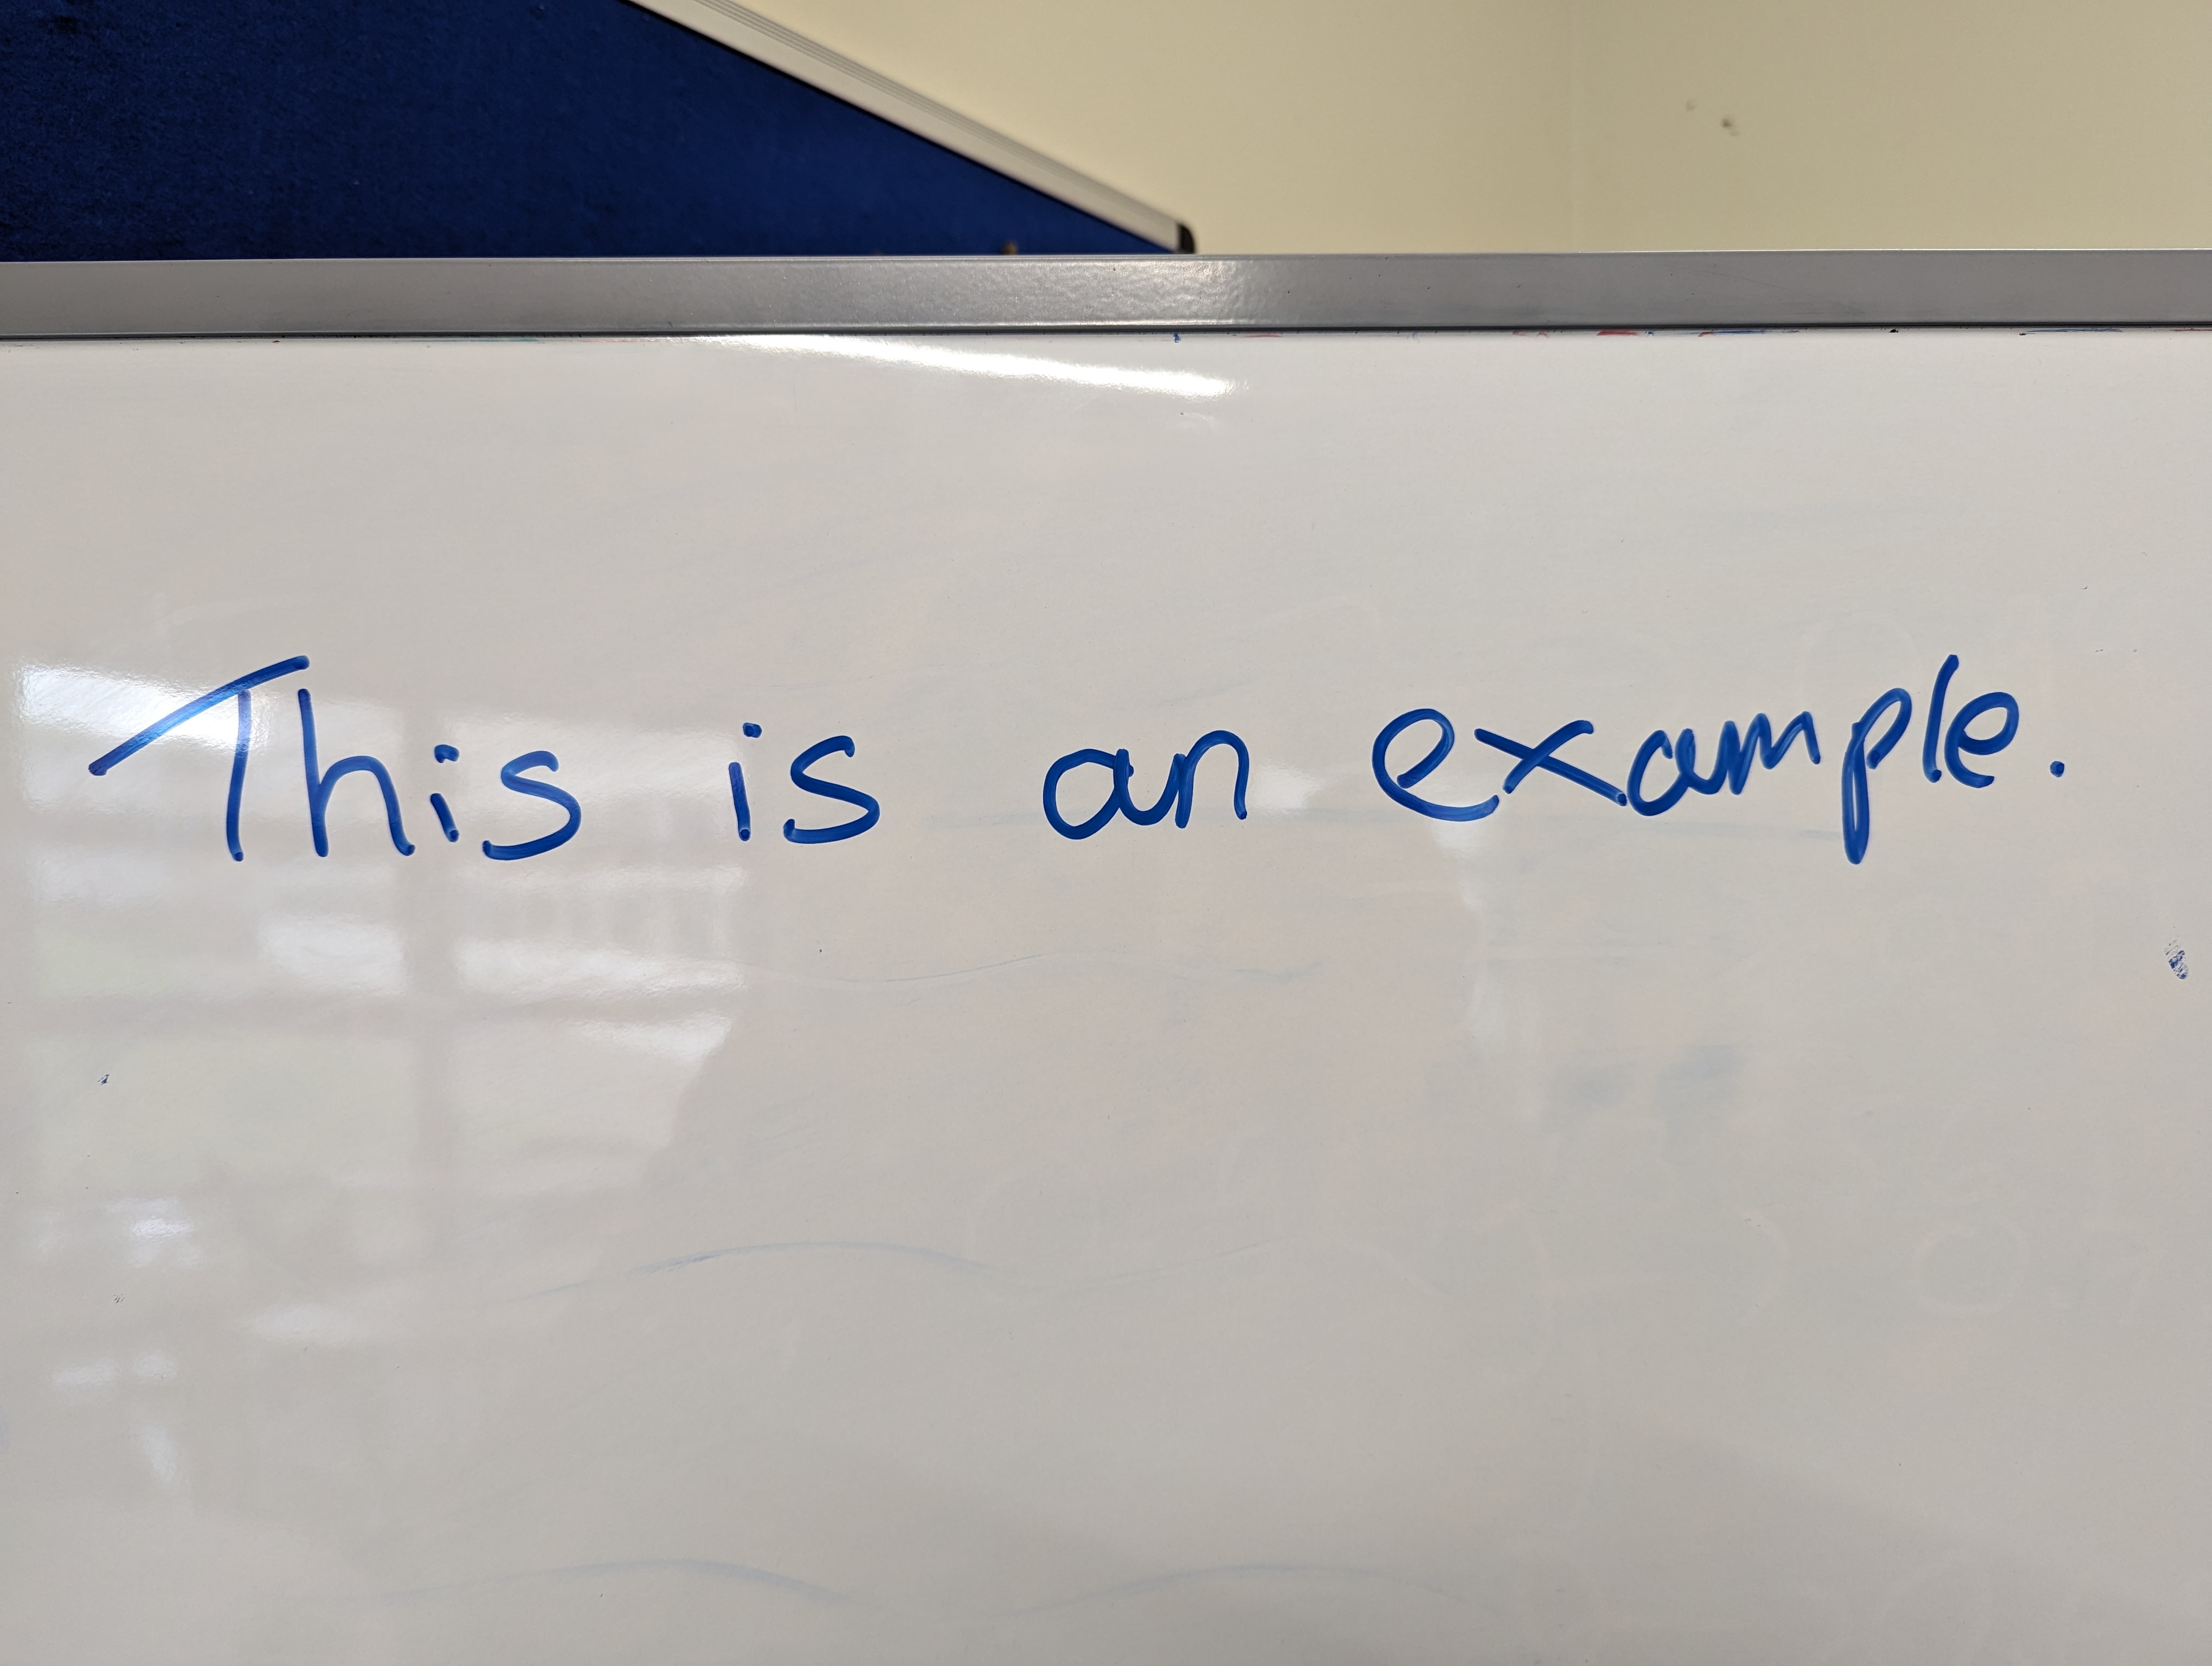 This is an example.